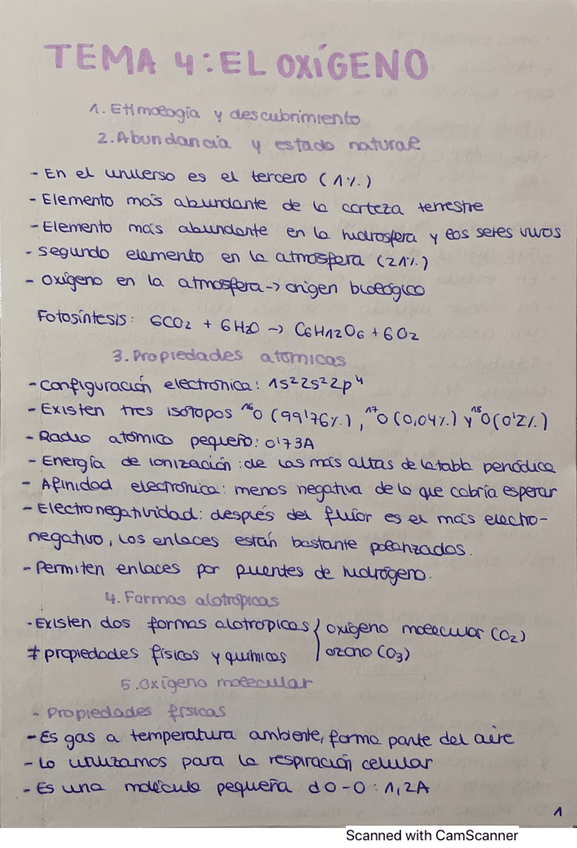 TEMA 4: EL OXÍGENO
1. Etimología y descubrimiento
2. Abundancia y estado natural
- En el universo es el tercero (1%)
- Elemento más abundante de la corteza terrestre
- Elemento más abundante en la hidrosfera y los seres vivos
- Segundo elemento en la atmosfera (21%)
- Oxígeno en la atmosfera -> origen biológico
Fotosíntesis: 6CO2 + 6H2O -> C6H12O6 + 6O2
3. Propiedades atómicas
- Configuración electrónica: 1s² 2s² 2p⁴
- Existen tres isótopos ¹⁶O (99'76%), ¹⁷O (0,04%) y ¹⁸O (0'2%)
- Radio atómico pequeño: 0'73A
- Energía de ionización: de las más altas de la tabla periódica
- Afinidad electrónica: menos negativa de lo que cabría esperar
- Electronegatividad: después del flúor es el más electro-
negativo, los enlaces están bastante polarizados.
- Permiten enlaces por puentes de hidrógeno.
4. Formas alotrópicas
- Existen dos formas alotrópicas { oxígeno molecular (O2)
≠ propiedades físicas y químicas ozono (O3)
5. Oxígeno molecular
- Propiedades físicas
- Es gas a temperatura ambiente, forma parte del aire
- Lo utilizamos para la respiración celular
- Es una molécula pequeña d O-O: 1,2A
1
Scanned with CamScanner